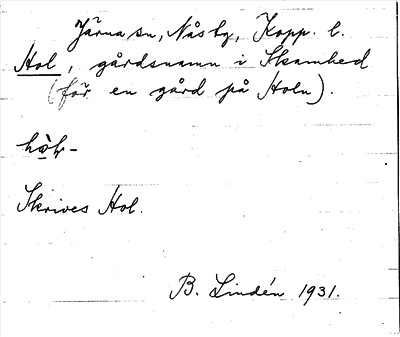 Järna sn, Nås bg, Kopp. l.
Hol, gårdsnamn i Skamhed
(för en gård på Holn).
hòł-
Skrives Hol.
B. Lindén 1931.